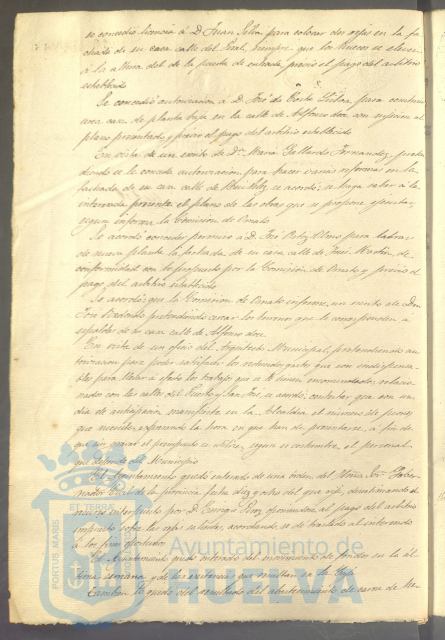 se concedió licencia á D. Juan Peña para colocar dos rejas en la fa-
chada de su casa calle del Peral, siempre que los huecos se eleven
á la altura del de la puerta de entrada, previo el pago del arbitrio
establecido
Se concedió autorización á D. José de Costa para construir
una casa de planta baja en la calle de Alfonso doce con sujeción al
plano presentado y previo el pago del arbitrio establecido
En vista de un escrito de Dª María Gallardo Fernandez, preten
diendo se le conceda autorización para hacer varias reformas en la
fachada de su casa calle de se acordó: se haga saber á la
interesada presente el plano de las obras que se propone ejecutar,
segun informa la Comisión de Ornato
Se acordó conceder permiso á D. José para labrar
de nueva planta la fachada de su casa calle de de
conformidad con lo propuesto por la Comisión de Ornato y previo el
pago del arbitrio establecido
Se acordó: que la Comisión de Ornato informe un escrito de Don
José Redondo pretendiendo cercar los terrenos que le corresponden á
espaldas de su casa calle de Alfonso doce
En vista de un oficio del Arquitecto Municipal, pretendiendo au
torización para poder satisfacer los reducidos gastos que son indispensa-
bles para llevar á efecto los trabajos que se le tienen encomendados, relacio
nados con las calles del Puerto y San José, se acordó: contestar que con un
dia de anticipación manifieste en la Alcaldia el número de peones
que necesite, expresando la hora en que han de presentarse, á fin de
que sin gravar el presupuesto se utilice, segun es costumbre, el personal
que depende del Municipio
El Ayuntamiento quedó enterado de una órden del Señor Gober-
nador Civil de la provincia, fecha diez y ocho del que rije, desestimando el
recurso interpuesto por D. Enrique oponiendose al pago del arbitrio
impuesto sobre las rejas salientes, acordandose se dé traslado al interesado
á los fines oportunos
El Ayuntamiento quedó enterado del movimiento de fondos en la úl-
tima semana y de las existencias que resultan en la Caja
Tambien lo quedó del resultado del abastecimiento de carne de
PORTUS MARIS
ET TERRÆ
Ayuntamiento de
HUELVA